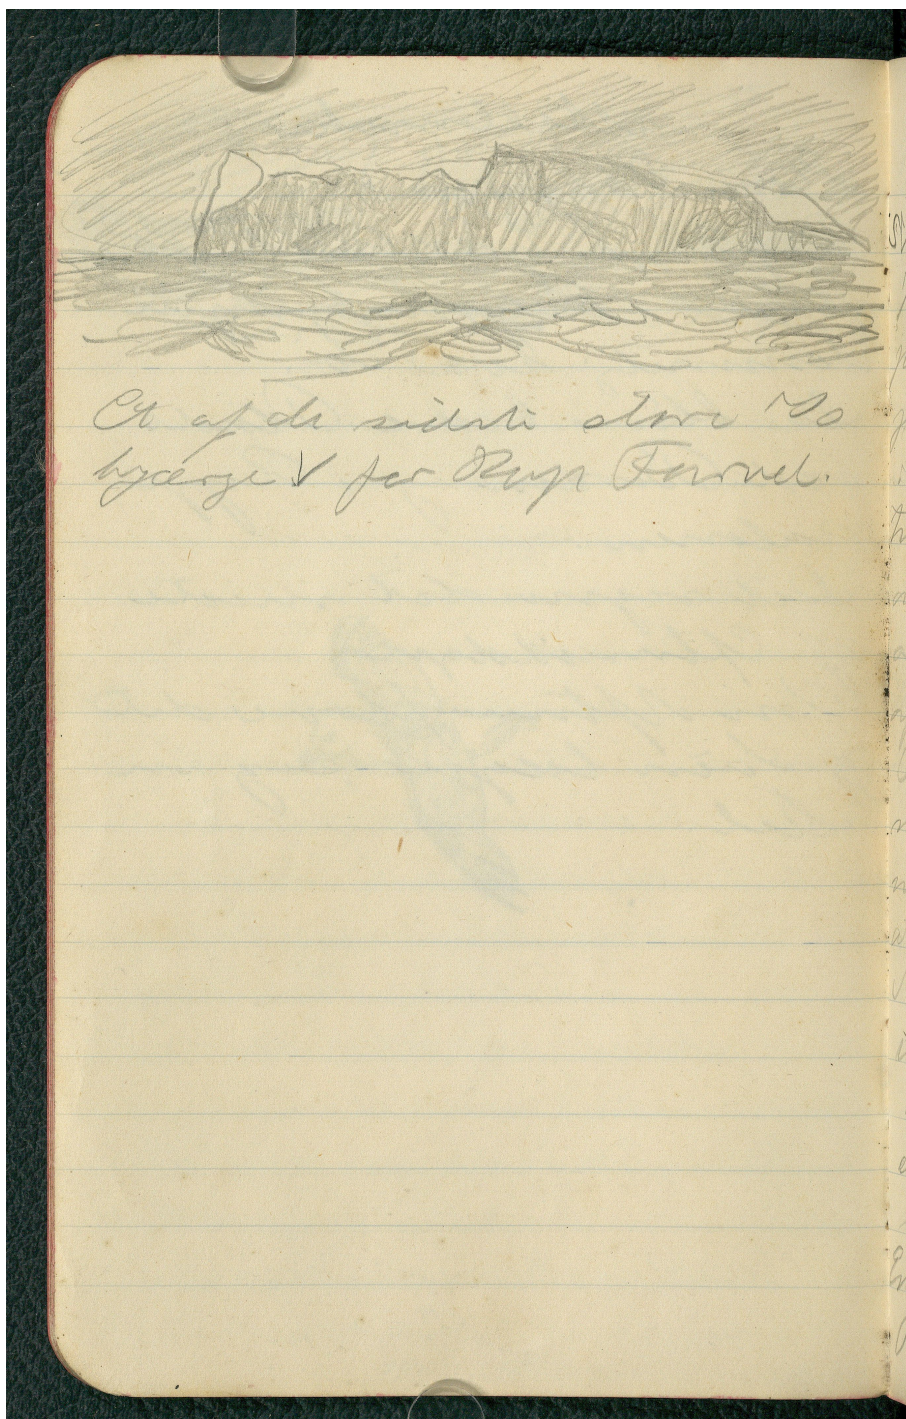 Et af de sidste store Is
bjærge V for Kap Farvel.